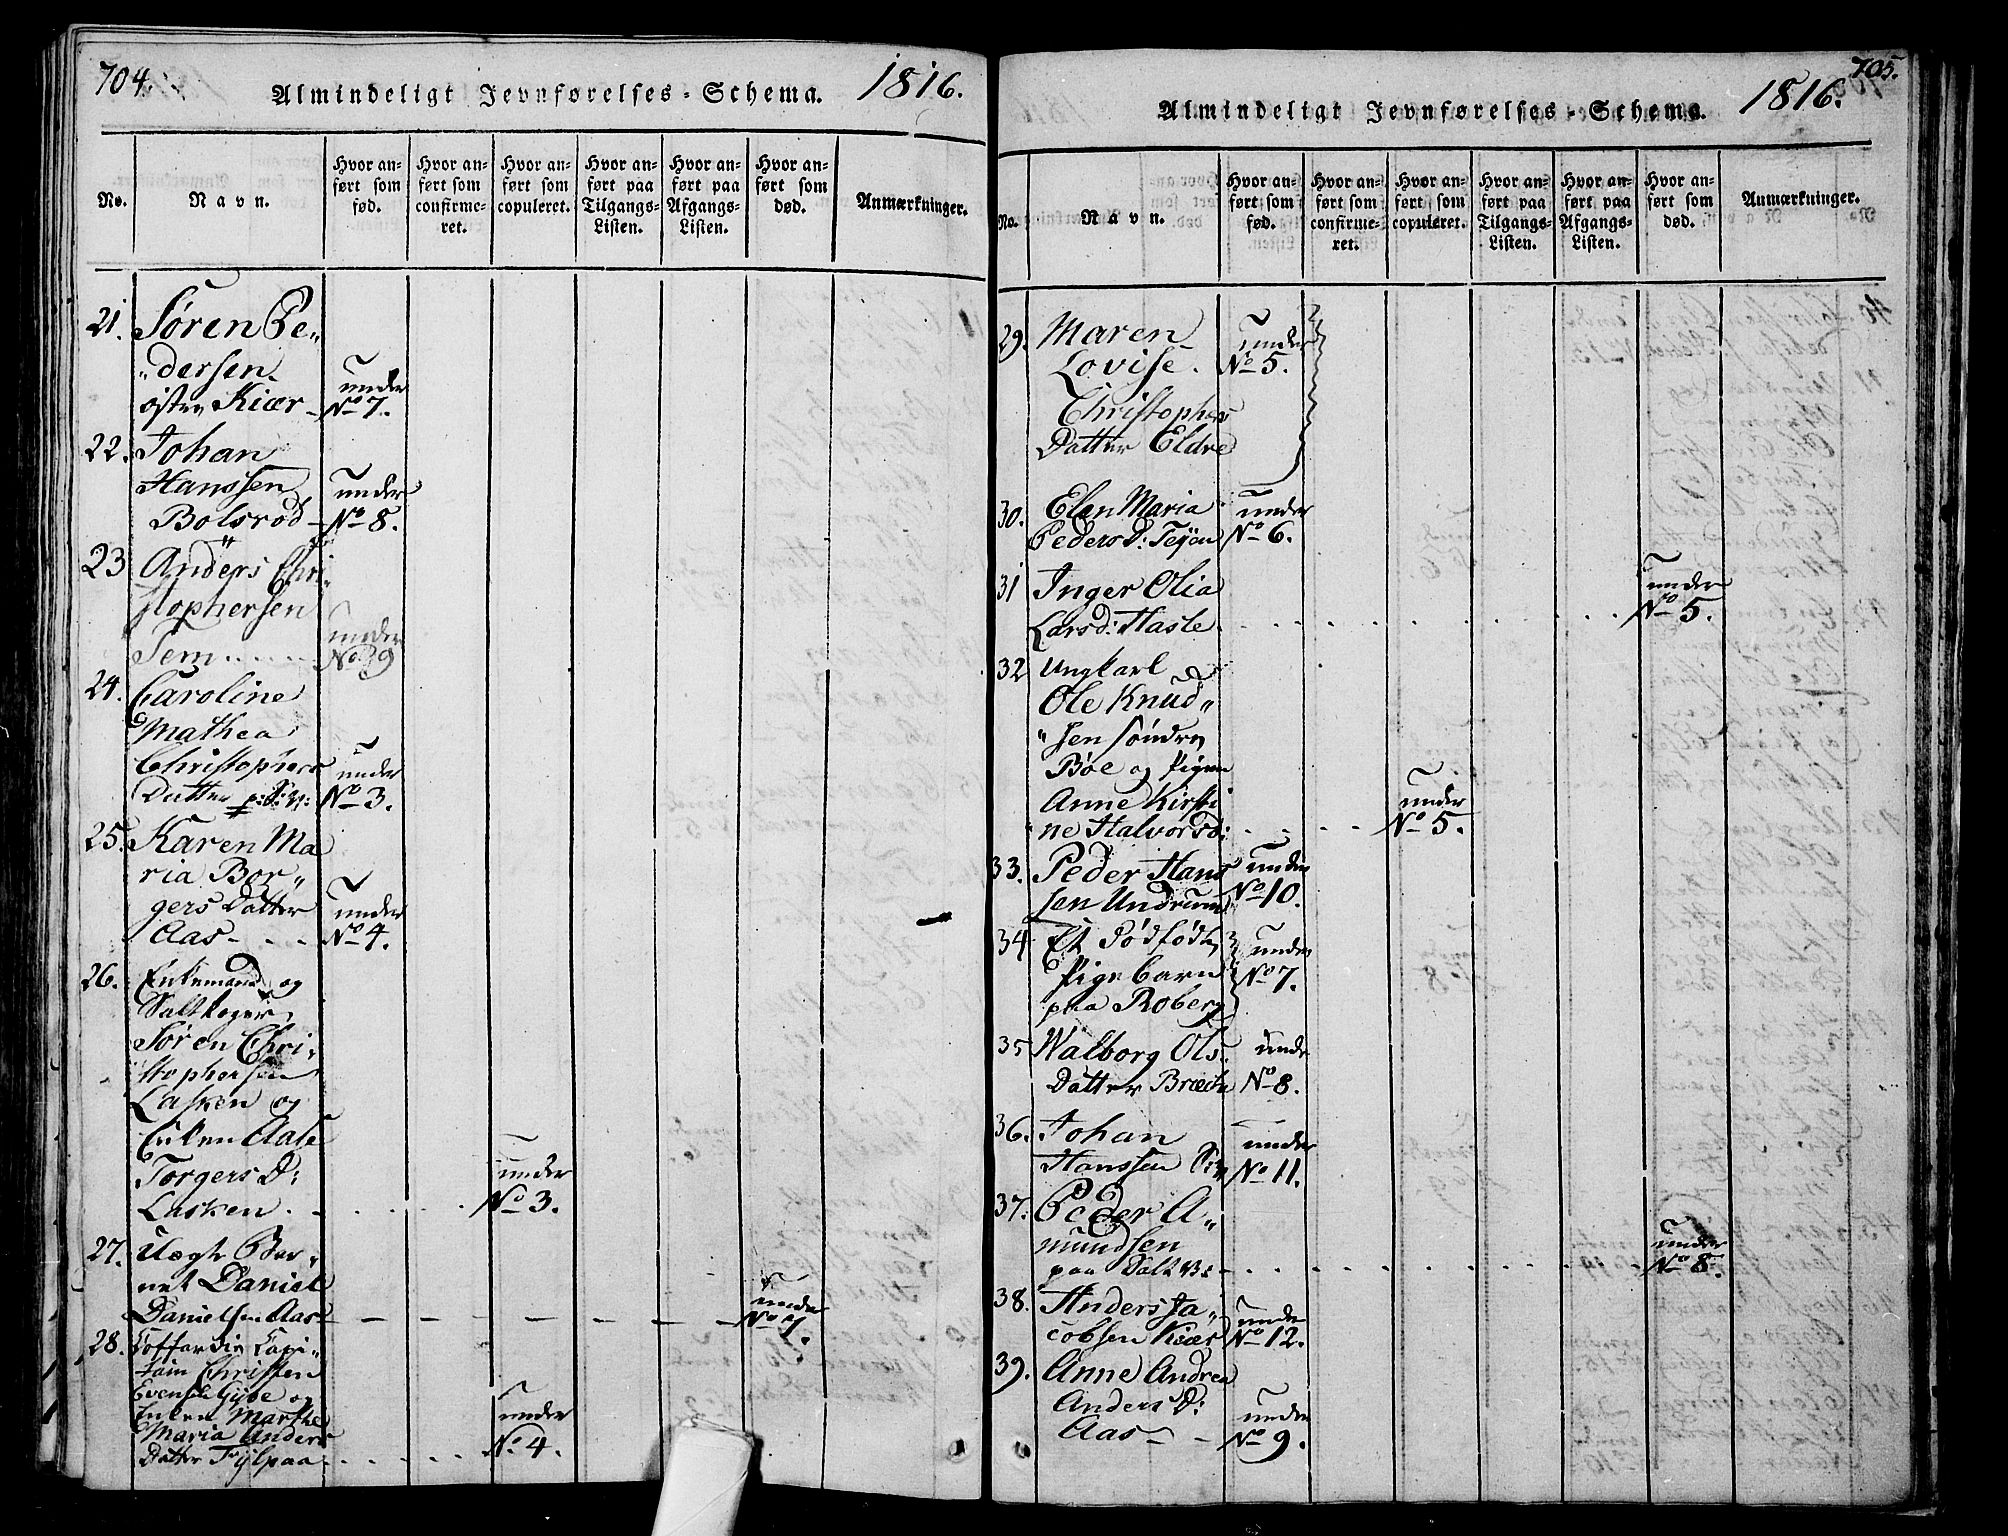 704.
Almindeligt Jevnførelses-Schema.
1816.
No.
Navn.
Hvor an-
ført som
fød.
Hvor an-
ført som
confirme-
ret.
Hvor an-
ført som
copuleret.
Hvor an-
ført paa
Tilgangs-
Listen.
Hvor an-
ført paa
Afgangs-
Listen.
Hvor an-
ført som
død.
Anmærkninger.
21. Søren Pe„
„dersen
østre Kiær under No 7.
22. Johan
Hanssen
Bolsrød under No 8.
23 Anders Chri„
stophersen
Tem under No 9
24. Caroline
Mathea
Christophers
Datter under No 3.
25. Karen Ma
ria Bor„
gers Datter
Aas under No 4.
26. Enkemand og
Saltkoger
Søren Chri„
stophersen
Lasken og
Enken Aase
Torgers D:
Lasken. under No 3.
27. Uægte Bar„
net Daniel
Danielsen Aas under No
28. Coffardie Capi„
tain Christen
Evensen og
Enken Marthe
Maria Anders
Datter under No 4.
705.
Almindeligt Jevnførelses-Schema.
1816.
No.
Navn.
Hvor an-
ført som
fød.
Hvor an-
ført som
confirme-
ret.
Hvor an-
ført som
copuleret.
Hvor an-
ført paa
Tilgangs-
Listen.
Hvor an-
ført paa
Afgangs-
Listen.
Hvor an-
ført som
død.
Anmærkninger.
29. Maren
Lovise
Christophers
Datter Eldre under No 5.
30. Elen Maria
Peders D: under No 6.
31 Inger Olia
Larsd: Hasle under No 5.
32 Ungkarl
Ole Knud„
„sen søndre
Bøe og Pigen
Anne Kirsti
„ne Halvorsd: under No 5.
33. Peder Hans
sen Undrum under No 10.
34 Et Dødfødt
Pigebarn
paa Roberg under No 7.
35 Walborg Ols
Datter under No 8.
36. Johan
Hanssen under No 11.
37. Peder A„
mundsen
paa under No 8.
38. Anders Ja„
cobsen Kiær under No 12.
39. Anne Andrea
Anders D:
Aas under No 9.